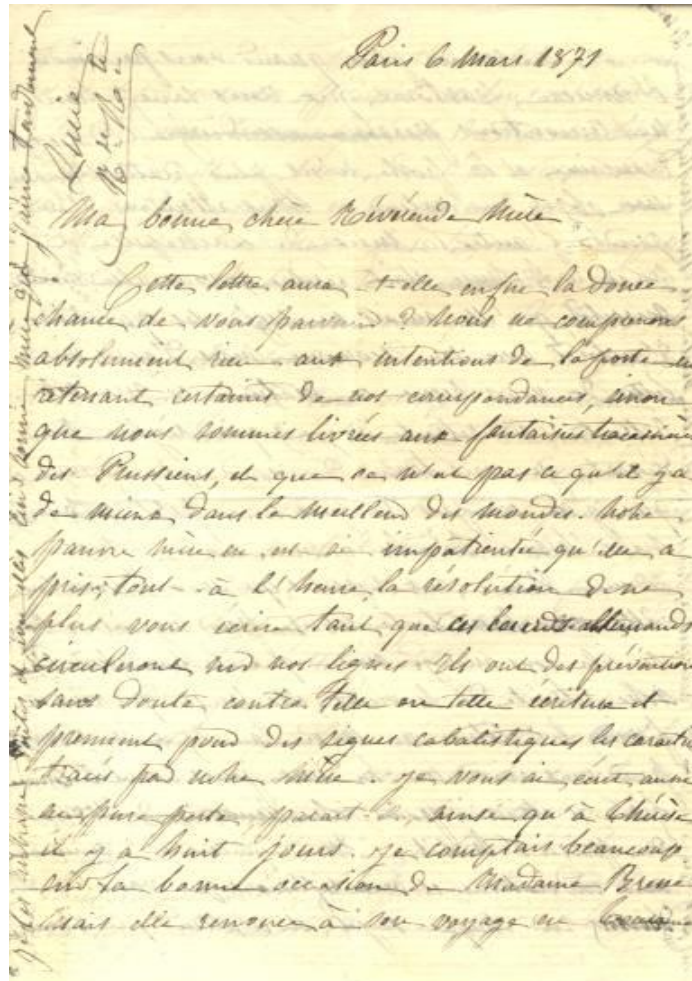 Paris 6 Mars 1871
Ma bonne chère Révérende Mère
Cette lettre aura-t-elle enfin la douce
chance de vous parvenir ? Nous ne comprenons
absolument rien aux intentions de la poste en
retenant certaines de nos correspondances, sinon
que nous sommes livrées aux fantaisies tracassières
des Prussiens, et que ce n'est pas ce qu'il y a
de mieux dans le meilleur des mondes. Notre
pauvre mère en est si impatientée qu'elle a
pris, tout-à l'heure la résolution de ne
plus vous écrire tant que ces lourds allemands
circuleront sur nos lignes. Ils ont des préventions
sans doute contre telle ou telle écriture et
prennent pour des signes cabalistiques les caractères
tracés par notre mère. Je vous ai écrit aussi
ainsi qu'à Thérèse
il y a huit jours. Je comptais beaucoup
sur la bonne occasion de Madame
elle renoncé à son voyage en